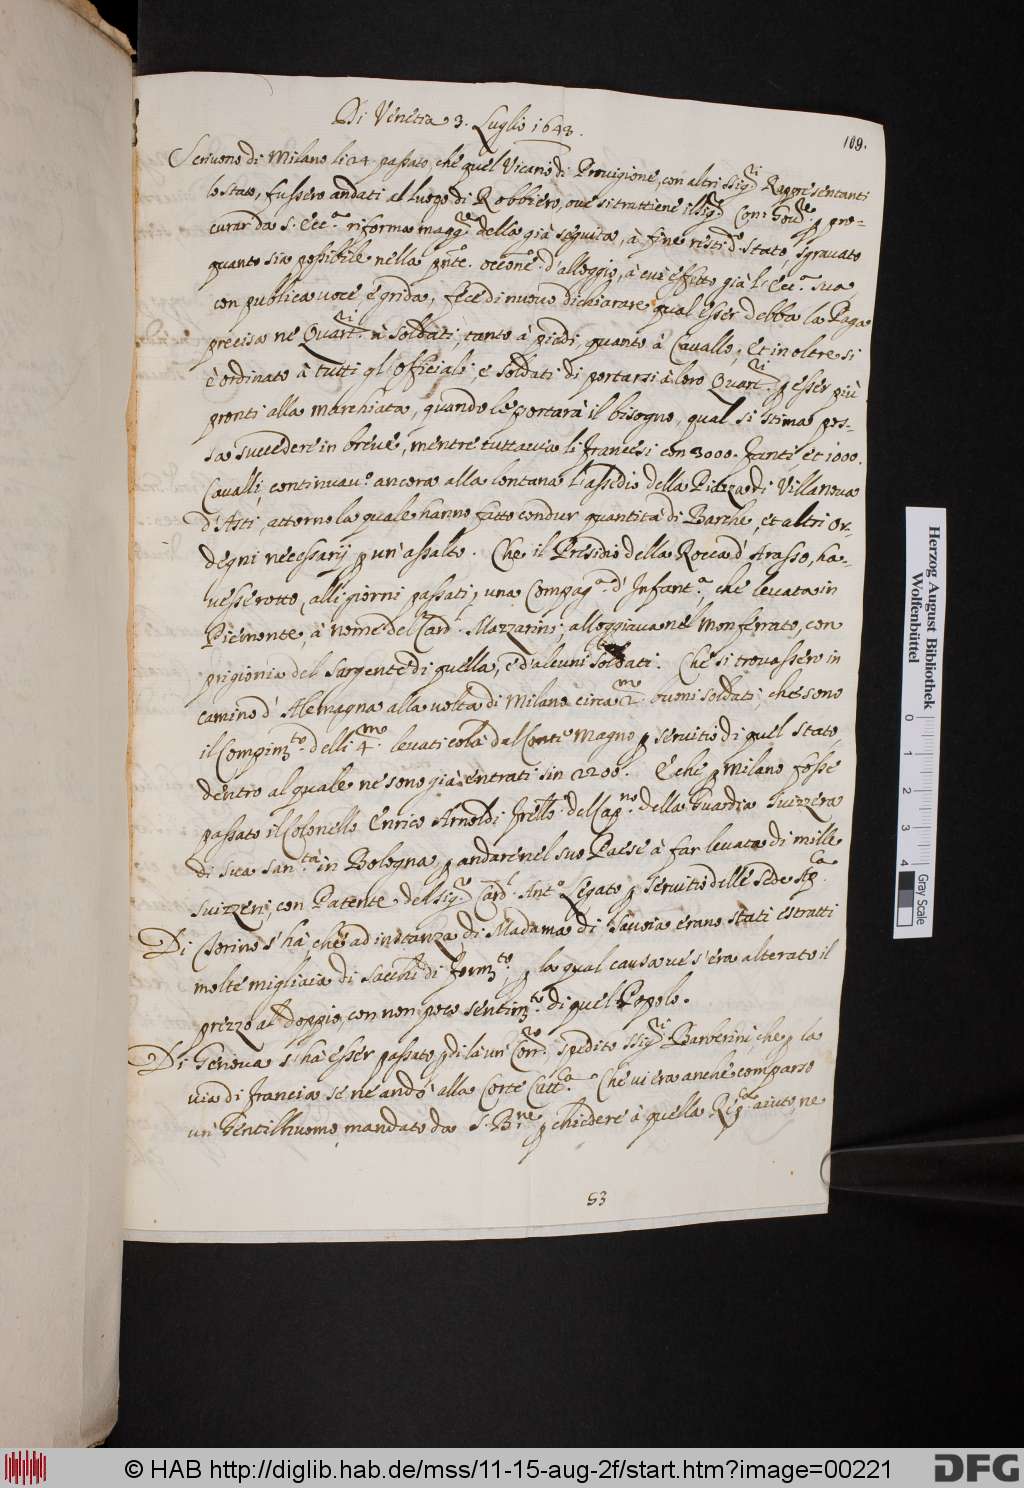 109.
Di Venetia 3. Luglio 1643.
Scrivono di Milano li 24 passato, che quel Vicario di Provigione, con altri SSig.ri Rappresentanti
lo Stato, fussero andati al luogo di Robbiero, ove si trattiene il Sig.r Con: Gov.re p pro-
curar da S. Ecc.a riforma magg.re della già seguita, à fine resti d.o Stato, sgravato
quanto sia possibile nella pnte. occone. d'alloggio, à cui effetto già l'Ecc.a Sua
con publica voce, è grida, fece di nuovo dichiarare qual esser debba la Paga
precisa ne Quart.ri à Soldati, tanto à piedi, quanto à Cavallo, Et in oltre si
è ordinato à tutti gl'Officiali, e Soldati di portarsi à loro Quart.ri p esser più
pronti alla marchiata, quando le portarà il bisogno, qual si stima pos-
sa succedere in breve, mentre tuttavia li francesi con 3000. fanti, et 1000.
Cavalli, continuav.o ancora alla lontana l'assedio della Piazza di Villanova
d'Asti, attorno la quale hanno fatto condur quantità di Barche, et altri or-
degni necessarij p un'assalto. Che il Presidio della Rocca d'Arasso, ha-
vesse rotto, alli giorni passati, una Compag.a d'Infant.a, che levata in
Piemonte, à nome del Card. Mazzarini, alloggiava nel Monferrato, con
prigionia del Sargente di quella, e d'alcuni Soldati. Che si trovassero in
camino d'Alemagna alla volta di Milano circa 2.mo buoni soldati, che sono
il Compim.to delli 4.mo levati colà dal Conte Magno p servitio di quel Stato,
dentro al quale ne sono già entrati sin 2200. E che p Milano fosse
passato il Colonello Enrico Arnoldi frello. del Cap.no della Guardia Suizzera
di sua San.tà in Bologna, p andare nel suo Paese à far levata di mille
Suizzeri, con Patente del Sig.r Card.l Ant.o Legato p servitio delle Sede Ap.ca
Di Torino s'hà che ad instanza di Madama di Savoia erano stati estratti
molte migliaia di Sacchi di form.to, p la qual causa ve s'era alterato il
prezzo al doppio, con non poco sentim.to di quel Popolo.
Di Genova s'hà esser passato p di là un Corr.ro spedito SSig.ri Barberini, che p la
via di francia se ne andò alla Corte Catt.ca Che vi era anche comparso
un Gentilhuomo mandato da S. B.ne p chiedere à quella Rep.ca aiuto, ne
53
Herzog August Bibliothek
Wolfenbüttel
0 1 2 3 4
Gray Scale
© HAB http://diglib.hab.de/mss/11-15-aug-2f/start.htm?image=00221
DFG